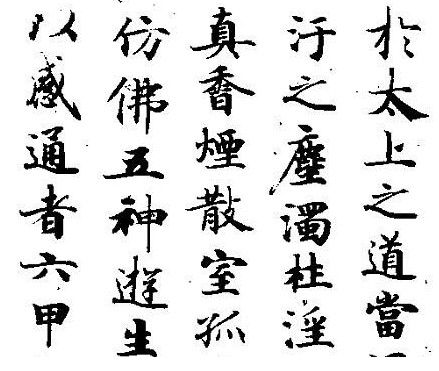 於太上之道當
汙之塵濁杜淫
真香煙散室孤
仿佛五神遊生
以感通者六甲